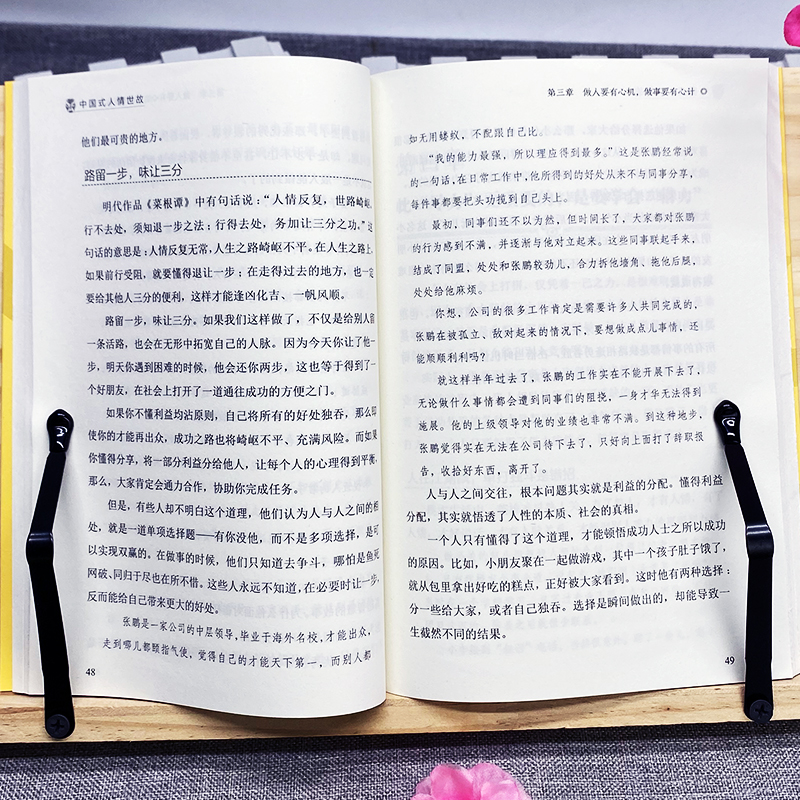 中国式人情世故
他们最可贵的地方。
路留一步，味让三分
明代作品《菜根谭》中有句话说：“人情反复，世路崎岖。
行不去处，须知退一步之法；行得去处，务加让三分之功。”这
句话的意思是：人情反复无常，人生之路崎岖不平。在人生之路上，
如果前行受阻，就要懂得退让一步；在走得过去的地方，也一定
要给其他人三分的便利，这样才能逢凶化吉、一帆风顺。
路留一步，味让三分。如果我们这样做了，不仅是给别人留
一条活路，也会在无形中拓宽自己的人脉。因为今天你让了他一
步，明天你遇到困难的时候，他会还你两步，这也等于得到了一
个好朋友，在社会上打开了一道通往成功的方便之门。
如果你不懂利益均沾原则，自己将所有的好处独吞，那么即
使你的才能再出众，成功之路也将崎岖不平、充满风险。而如果
你懂得分享，将一部分利益分给他人，让每个人的心理得到平衡，
那么，大家肯定会通力合作，协助你完成任务。
但是，有些人却不明白这个道理，他们认为人与人之间的相
处，就是一道单项选择题——有你没他，而不是多项选择，是可
以实现双赢的。在做事的时候，他们只知道去争斗，哪怕是鱼死
网破、同归于尽也在所不惜。这些人永远不知道，在必要时让一步，
反而能给自己带来更大的好处。
张鹏是一家公司的中层领导，毕业于海外名校，才能出众，
走到哪儿都颐指气使，觉得自己的才能天下第一，而别人都
48
第三章 做人要有心机，做事要有心计
如无用蝼蚁，不配跟自己比。
“我的能力最强，所以理应得到最多。”这是张鹏经常说
的一句话，在日常工作中，他所得到的好处从来不与同事分享，
每件事都要把头功揽到自己头上。
最初，同事们还不以为然，但时间长了，大家都对张鹏
的行为感到不满，并逐渐与他对立起来。这些同事联起手来，
结成了同盟，处处和张鹏较劲儿，合力拆他墙角、拖他后腿，
处处给他麻烦。
你想，公司的很多工作肯定是需要许多人共同完成的，
张鹏在被孤立、敌对起来的情况下，要想做成点儿事情，还
能顺顺利利吗？
就这样半年过去了，张鹏的工作实在不能开展下去了，
无论做什么事情都会遭到同事们的阻挠，一身才华无法得到
施展。他的上级领导对他的业绩也非常不满。到这种地步，
张鹏觉得实在无法在公司待下去了，只好向上面打了辞职报
告，收拾好东西，离开了。
人与人之间交往，根本问题其实就是利益的分配。懂得利益
分配，其实就悟透了人性的本质、社会的真相。
一个人只有懂得了这个道理，才能顿悟成功人士之所以成功
的原因。比如，小朋友聚在一起做游戏，其中一个孩子肚子饿了，
就从包里拿出好吃的糕点，正好被大家看到。这时他有两种选择：
分一些给大家，或者自己独吞。选择是瞬间做出的，却能导致一
生截然不同的结果。
49